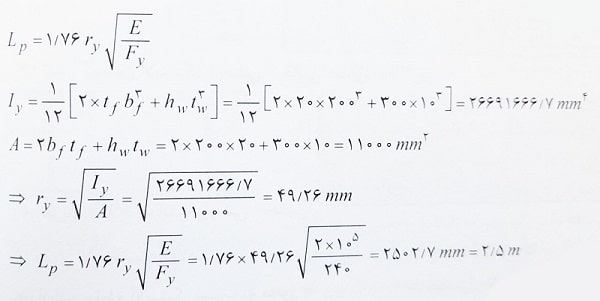 L_p = ۱/۷۶ r_y √(E/F_y)
I_y = ۱/۱۲ [۲ × t_f b_f^۳ + h_w t_w^۳] = ۱/۱۲ [۲ × ۲۰ × ۲۰۰^۳ + ۳۰۰ × ۱۰^۳] = ۲۶۶۹۱۶۶۶/۷ mm^۴
A = ۲b_f t_f + h_w t_w = ۲ × ۲۰۰ × ۲۰ + ۳۰۰ × ۱۰ = ۱۱۰۰۰ mm^۲
⇒ r_y = √(I_y/A) = √(۲۶۶۹۱۶۶۶/۷ / ۱۱۰۰۰) = ۴۹/۲۶ mm
⇒ L_p = ۱/۷۶ r_y √(E/F_y) = ۱/۷۶ × ۴۹/۲۶ √(۲ × ۱۰^۵ / ۲۴۰) = ۲۵۰۲/۷ mm = ۲/۵ m